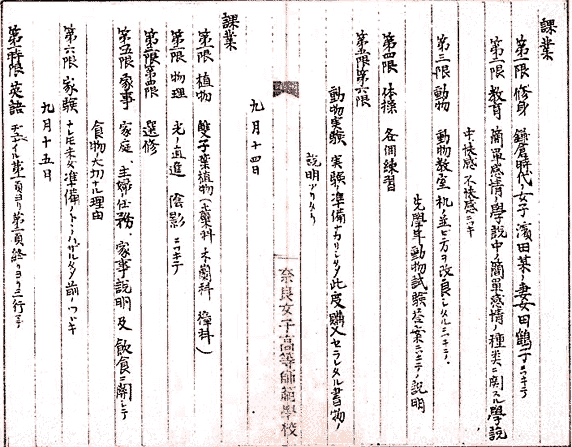 課業
第一限 修身 鎌倉時代ノ女子 濱田某ノ妻田鶴子ニツキテ
第二限 教育 簡單感情ノ學説中ノ簡單感情ノ種類ニ関スル學説
中 快感 不快感ニツキ
第三限 動物 動物教室 机ノ並ビ方ヲ改良シタルニツキテ、
先學年動物試験答案ニツキテノ説明
第四限 体操 各個練習
第五限第六限
動物実験 実験ノ準備 此度購入セラレタル書物ノ
説明アリタリ
九月十四日
課業
第一限 植物 雙子葉植物(毛莨科 木蘭科 樟科)
第二限 物理 光ノ直進 陰影ニツキテ
第三限第四限 選修
第五限 家事 家庭、主婦ノ任務、家事説明及飲食ニ関シテ
食物大切ナル理由
第六限 家験 準備 前ノツヾキ
九月十五日
第一時限 英語 第一頁ヨリ第二頁終リヨリ三行マデ
奈良女子高等師範學校